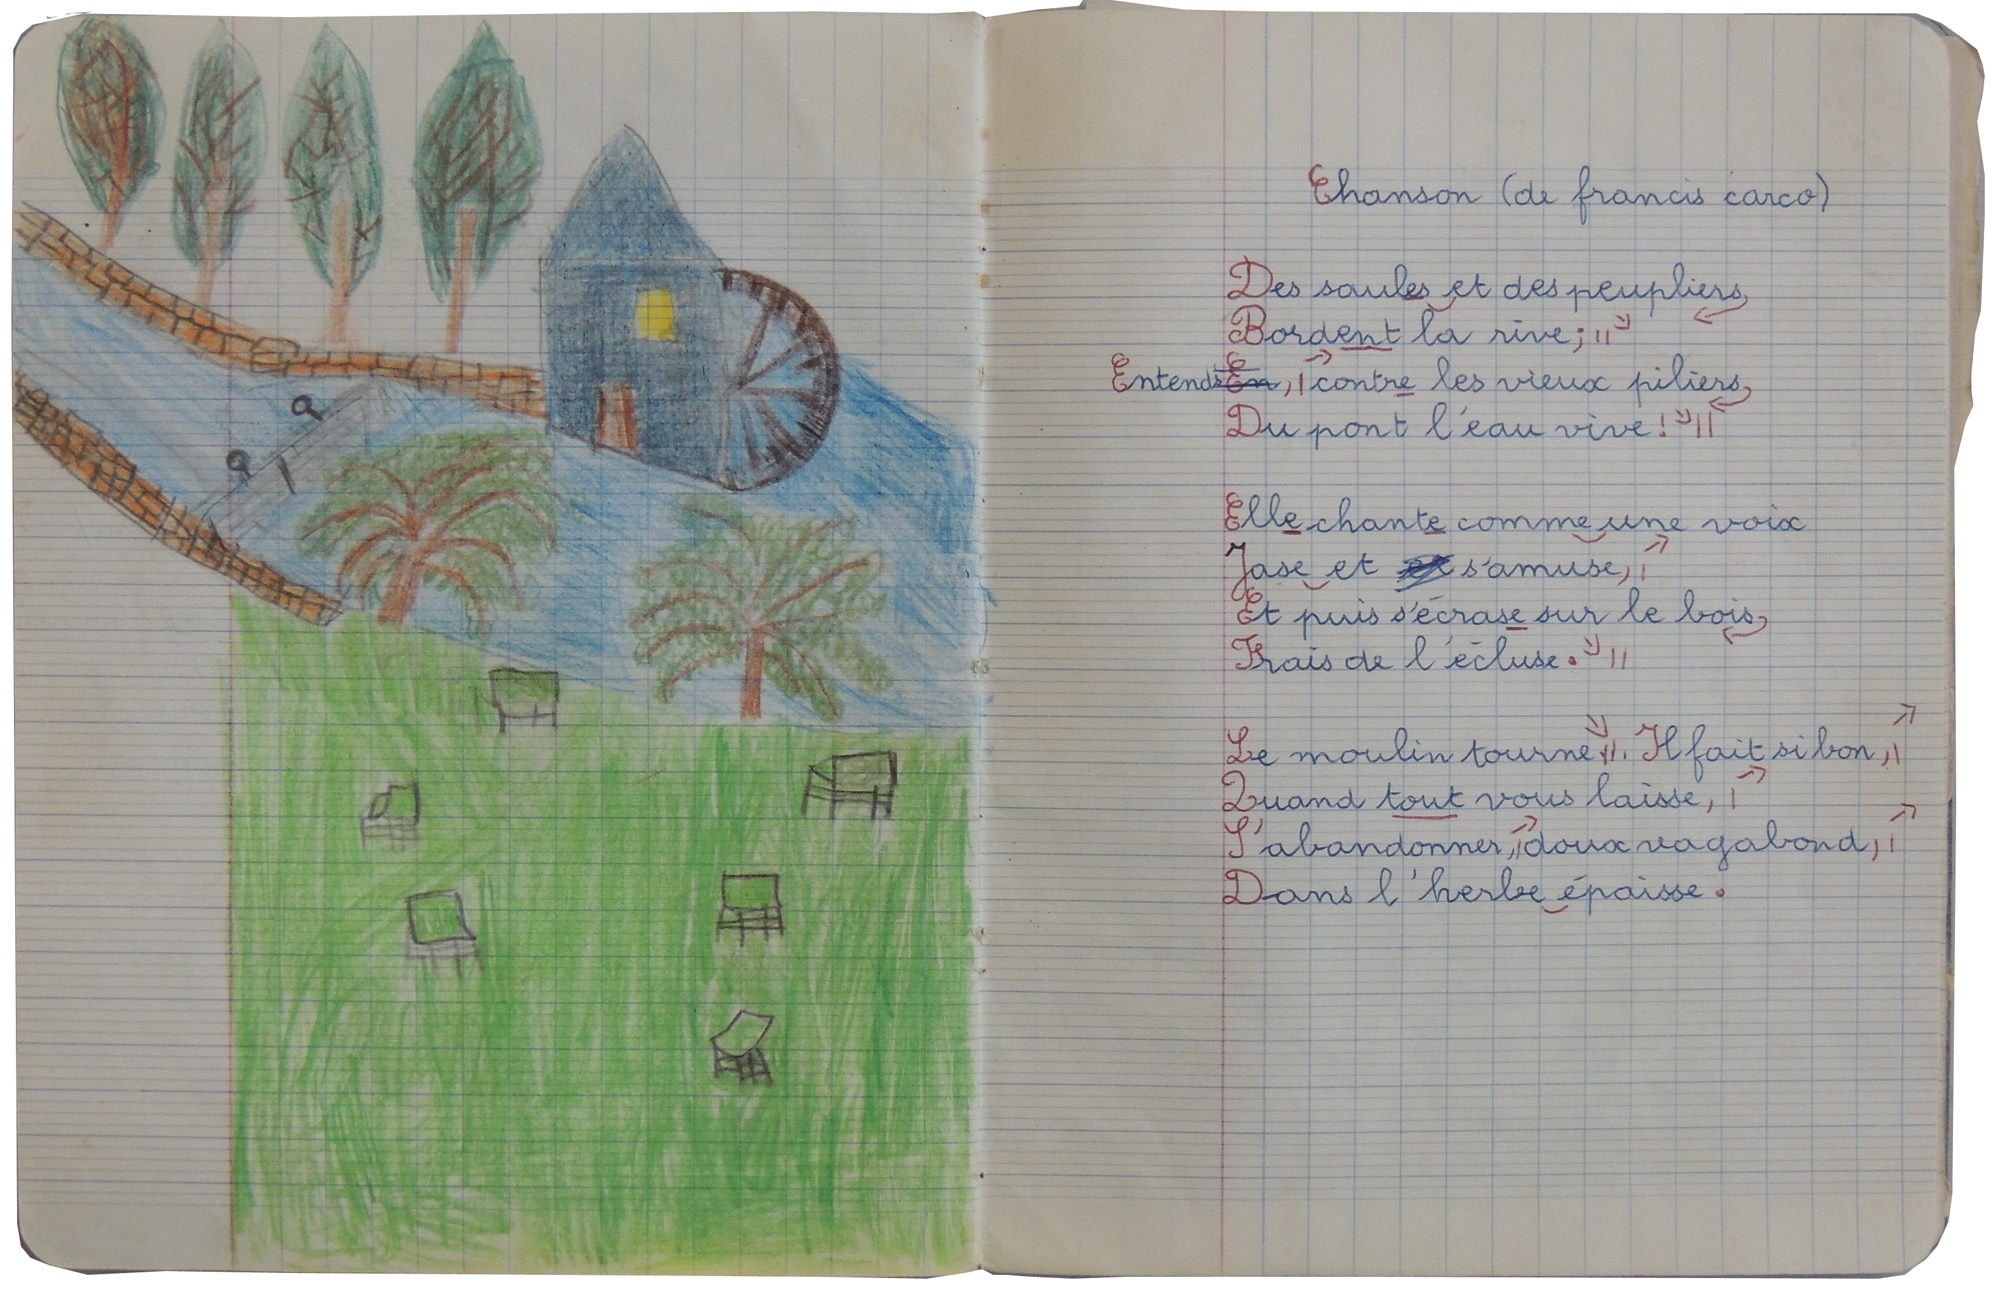 Chanson (de francis carco)
Des saules et des peupliers
Bordent la rive;
Entends, contre les vieux piliers
Du pont l'eau vive!
Elle chante comme une voix
Jase et s'amuse,
Et puis s'écrase sur le bois
Frais de l'écluse.
Le moulin tourne. Il fait si bon,
Quand tout vous laisse,
S'abandonner, doux vagabond,
Dans l'herbe épaisse.